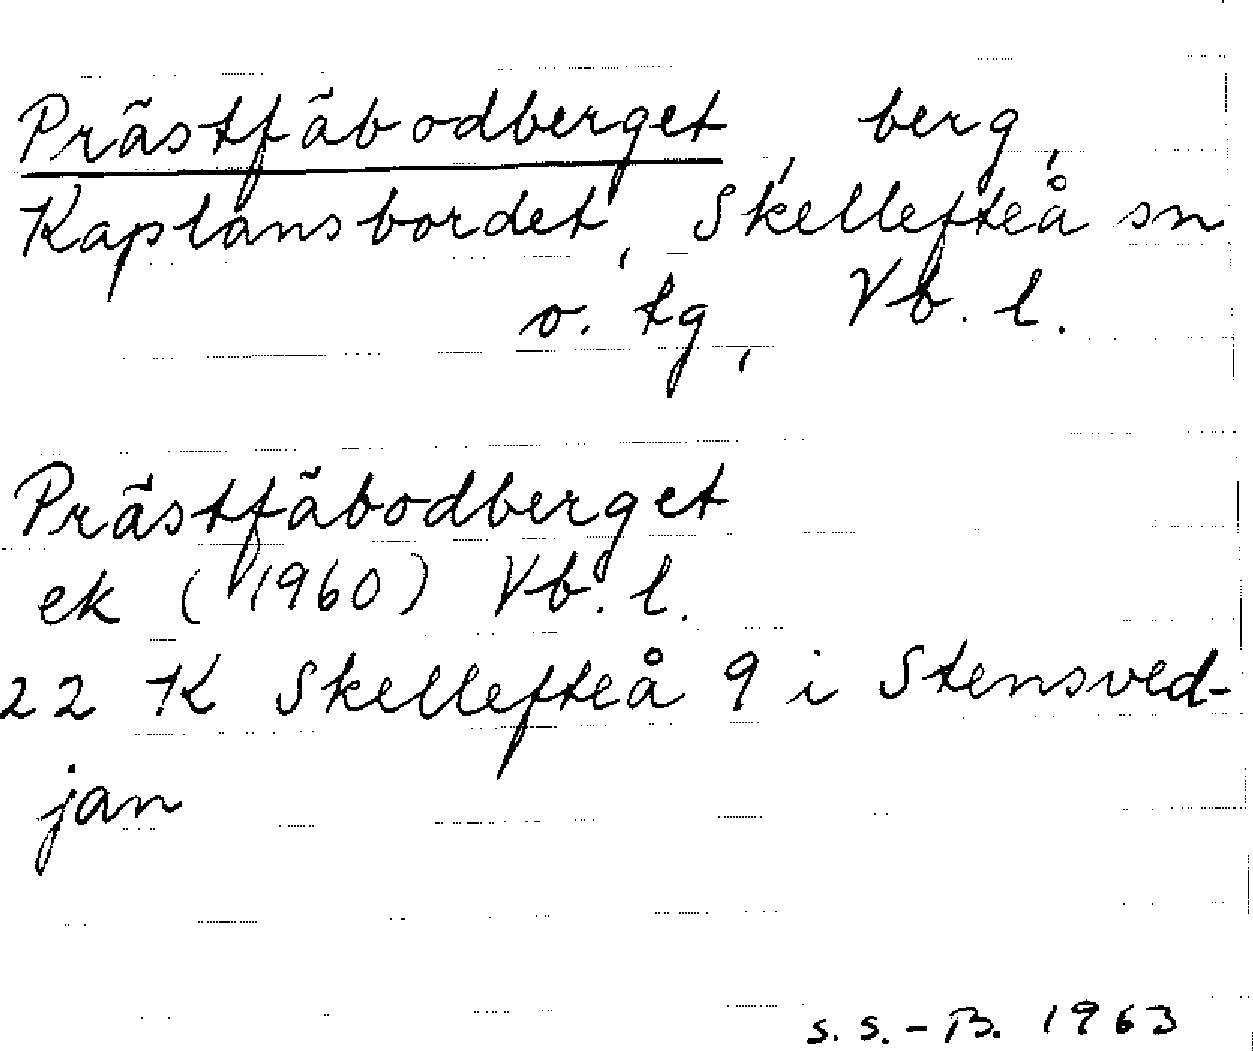 Prästfäbodberget, berg,
Kaplansbordet, Skellefteå sn
o. tg, Vb. l.
Prästfäbodberget
ek (1960) Vb. l.
22 K Skellefteå 9 i Stensved-
jan
S. S.-B. 1963